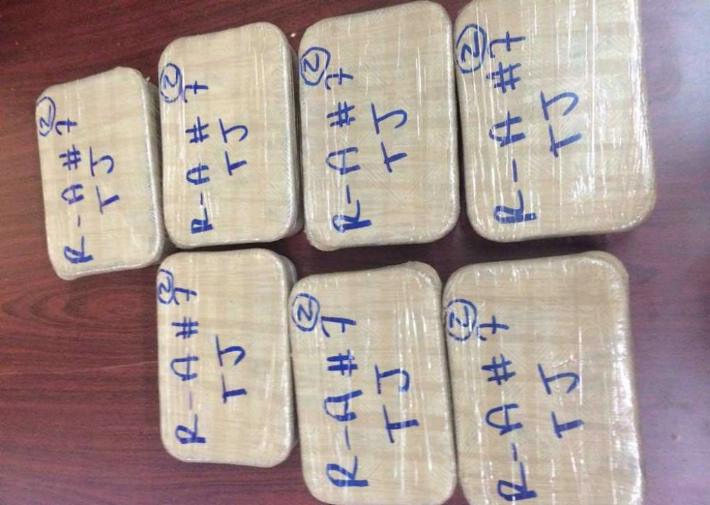 ② R-A #7
TJ
② R-A #7
TJ
② R-A #7
TJ
② R-A #7
TJ
② R-A #7
TJ
② R-A #7
TJ
② R-A #7
TJ